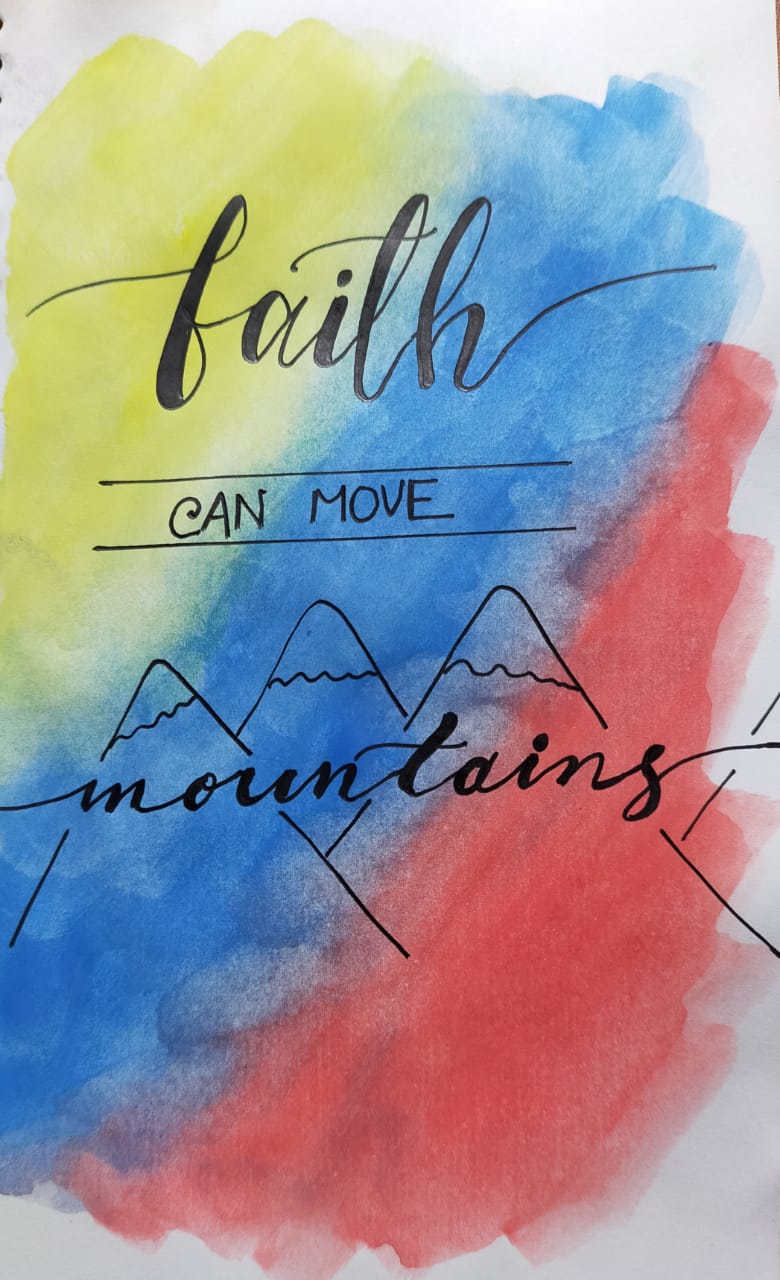 faith
CAN MOVE
mountains